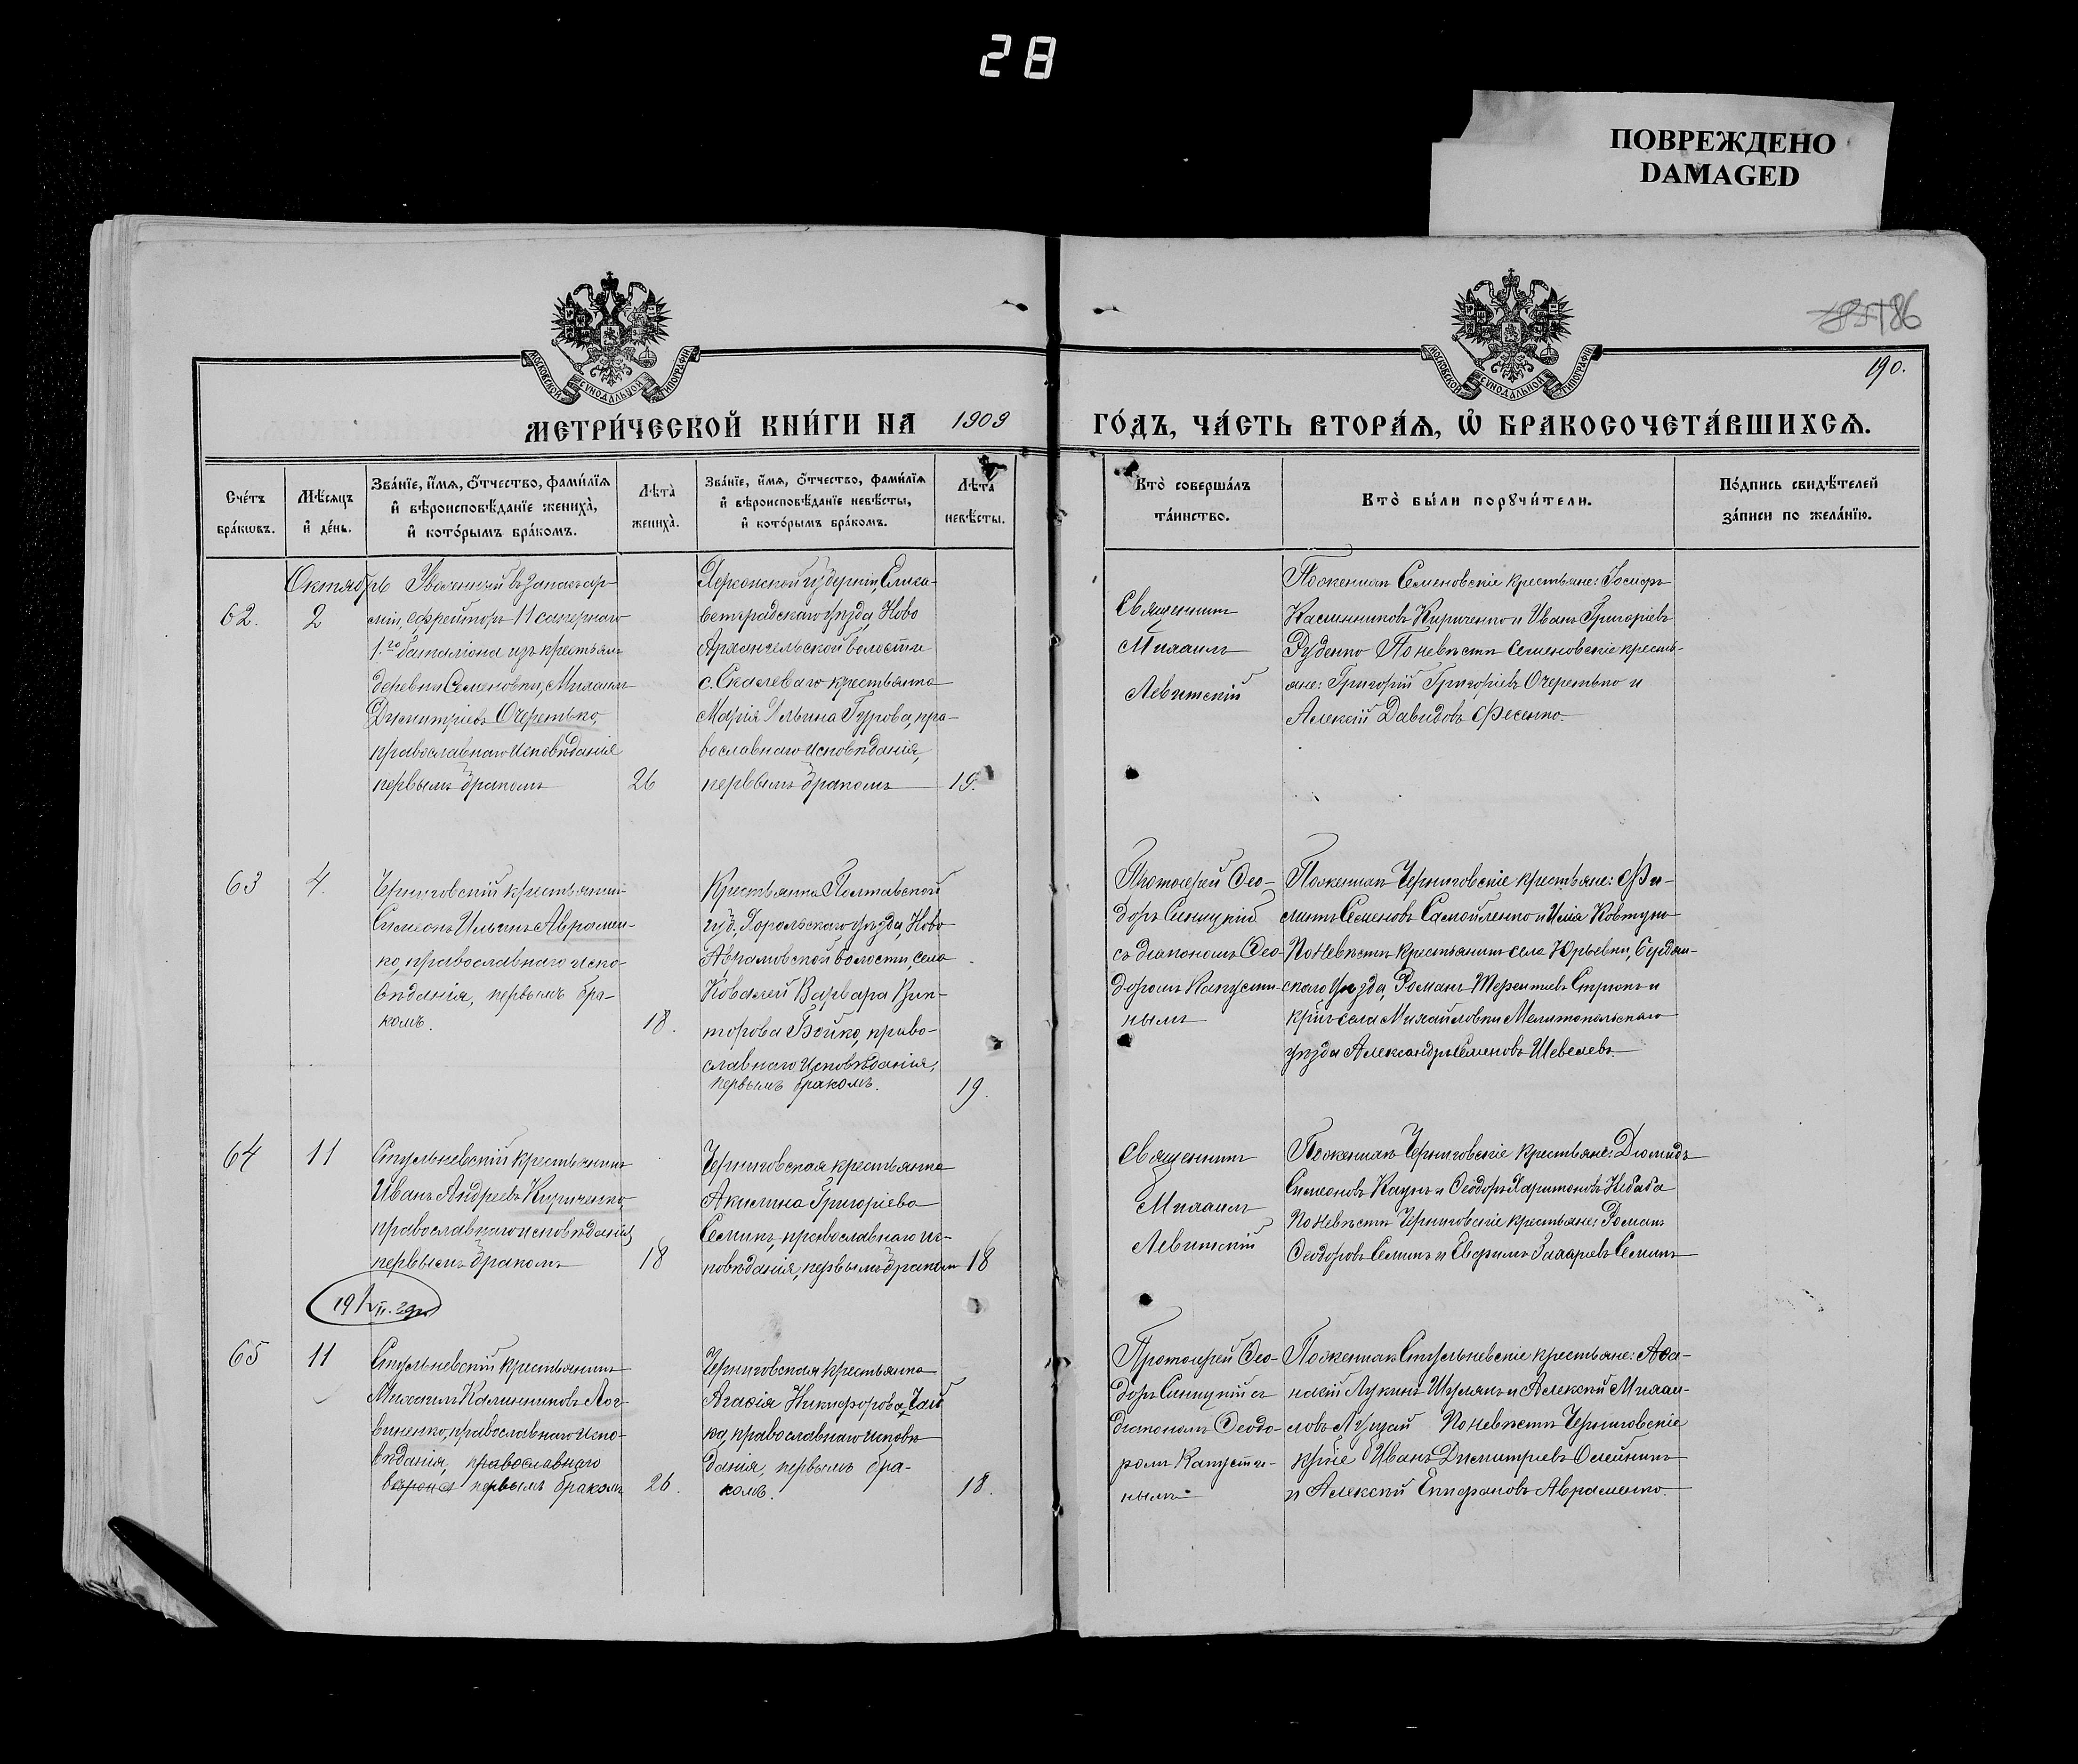 28
ПОВРЕЖДЕНО
DAMAGED
186
190.
МОСКОВСКОЙ СѴНОДАЛЬНОЙ ТИПОГРАФІИ
МОСКОВСКОЙ СѴНОДАЛЬНОЙ ТИПОГРАФІИ
МЕТРИ́ЧЕСКОЙ КНИ́ГИ НА 1909 ГО́ДЪ, ЧА́СТЬ ВТОРА́Ѧ, Ѡ҆ БРАКОСОЧЕТА́ВШИХСѦ.
Сче́тъ
бра́кѡвъ.
Мѣ́сяцъ
и҆ де́нь.
Зва́нїе, и҆́мѧ, ѻ҆́тчество, фами́лїѧ
и҆ вѣроисповѣ́данїе жениха̀,
и҆ кото́рымъ бра́комъ.
Лѣта̀
жениха̀.
Зва́нїе, и҆́мѧ, ѻ҆́тчество, фами́лїѧ
и҆ вѣроисповѣ́данїе невѣ́сты,
и҆ кото́рымъ бра́комъ.
Лѣта̀
невѣ́сты.
Кто̀ соверша́лъ
та́инство.
Кто̀ бы́ли порꙋчи́тели.
По́дпись свидѣ́телей
за́писи по жела́нїю.
Октябрь
62.
2
Уволенный въ запас ар-
міи, ефрейторъ 11 сапернаго
1.го баталіона изъ крестьян
деревни Семеновки, Михаилъ
Димитріевъ Очеретько,
православнаго исповѣданія
первымъ бракомъ
26
Херсонской губерніи, Елиса-
ветградскаго уѣзда, Ново
Архангельской волости
с. Скалеваго крестьянка
Марія Ильина Гурова, пра-
вославнаго исповѣданія,
первымъ бракомъ
19.
Священникъ
Михаилъ
Левитскій
По женихѣ Семеновскіе крестьяне: Іосифъ
Калинниковъ Кириченко и Иванъ Григоріевъ
Руденко По невѣстѣ Семеновскіе кресть-
яне: Григорій Григоріевъ Очеретько и
Алексій Давидовъ Фесенко.
63
4.
Черниговскій крестьянин
Симеонъ Ильинъ Авромен-
ко, православнаго испо-
вѣданія, первымъ бра-
комъ.
18.
Крестьянка Полтавской
губ. Хорольскаго уѣзда, Ново
Аврамовской волости, села
Ковалей Варвара Вик-
торова Бойко, право-
славнаго исповѣданія,
первымъ бракомъ.
19.
Протоіерей Ѳео-
доръ Синицкій
съ діакономъ Ѳео-
доромъ Капусти-
нымъ
По женихѣ Черниговскіе крестьяне: Фи-
липпъ Семеновъ Самойленко и Илія Ковтун
По невѣстѣ крестьянинъ села Юрьевки, Бердян-
скаго уѣзда, Романъ Терентіевъ Стрюкъ и
кр-нъ села Михайловки Мелитопольскаго
уѣзда Александръ Семеновъ Шевелевъ.
64
11
Стульневскій крестьянинъ
Иванъ Андреевъ Кириченко,
православнаго исповѣданія
первымъ бракомъ
18
Черниговская крестьянка
Акилина Григоріева
Семикъ, православнаго ис-
повѣданія, первымъ бракомъ
18
Священникъ
Михаилъ
Левитскій
По женихѣ Черниговскіе крестьяне: Діомидъ
Симеоновъ Каунъ и Ѳеодоръ Харитоновъ Небаба
По невѣстѣ Черниговскіе крестьяне: Романъ
Ѳеодоровъ Семикъ и Евфимъ Захаріевъ Семикъ
65
11
Стульневскій крестьянинъ
Михаилъ Калинниковъ Лог-
виненко, православнаго испо-
вѣданія, православнаго
первымъ бракомъ
26.
Черниговская крестьянка
Агафія Никифорова Чай
ка, православнаго исповѣ
данія, первымъ бра-
комъ.
18.
Протоіерей Ѳео-
доръ Синицкій съ
діакономъ Ѳеодо-
ромъ Капусти-
нымъ
По женихѣ Стульневскіе крестьяне: Аѳа-
насій Лукинъ Шулякъ и Алексій Михаи-
ловъ Луцай По невѣстѣ Черниговскіе
кр-не Иванъ Димитріевъ Олейникъ
и Алексій Епифановъ Авраменко.